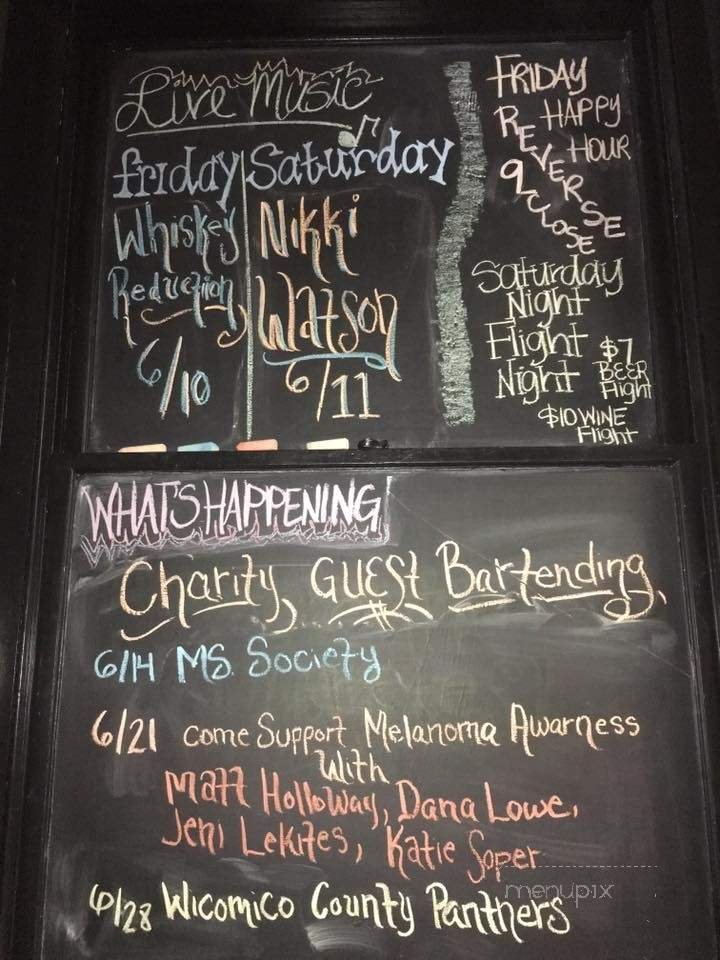 Live Music
friday Saturday
Whiskey Reduction 6/10
Nikki Watson 6/11
FRIDAY
HAPPY
HOUR
REVERSE
9 CLOSE
Saturday
Night
Flight
Night
$7
BEER
Flight
$10 WINE
Flight
WHAT'S HAPPENING
Charity, GUESt Bartending,
6/14 MS. Society
6/21 come Support Melanoma Awarness
With
Matt Holloway, Dana Lowe,
Jeni Lekites, Katie Soper
6/28 Wicomico County Panthers
menupix